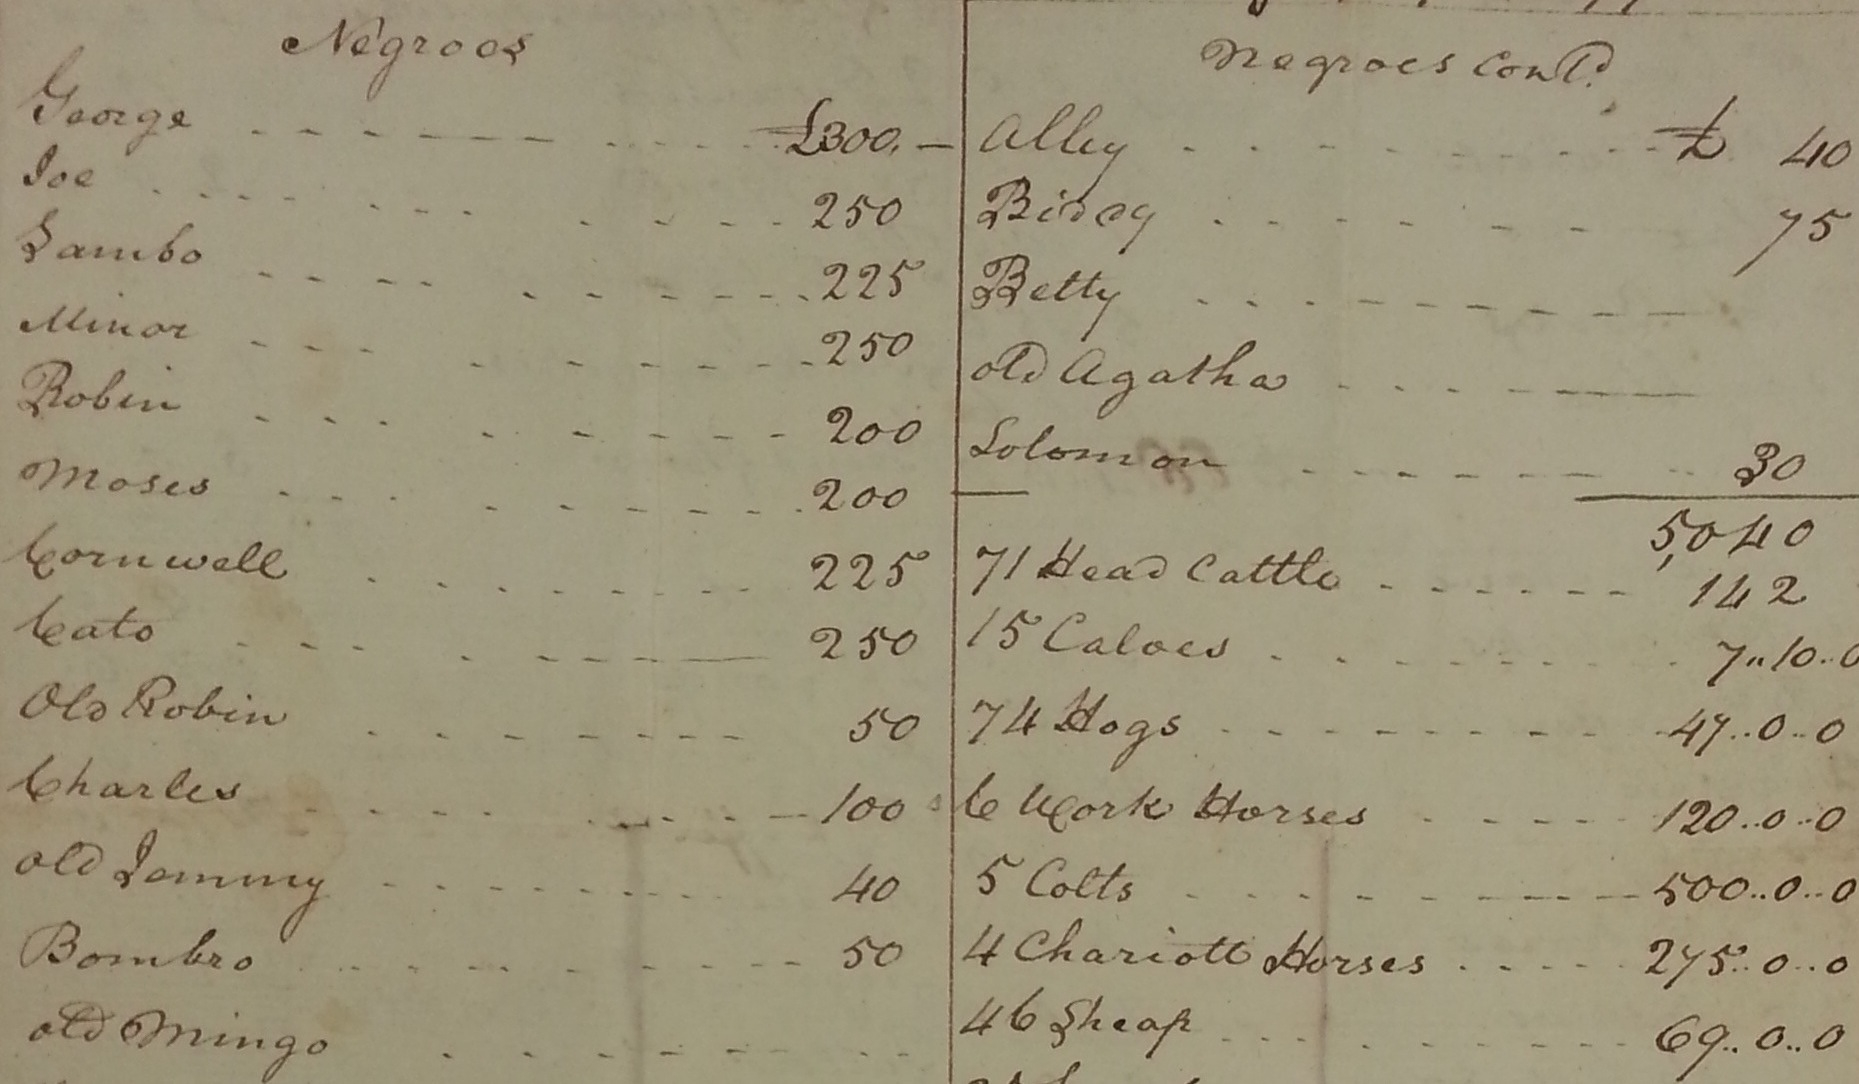 Negroes
George £300.
Joe 250
Sambo 225
Minor 250
Robin 200
Moses 200
Cornwell 225
Cato 250
Old Robin 50
Charles 100
old Jemmy 40
Bombro 50
old Mingo
Negroes Cont.d
Alley £ 40
Biddy 75
Betty
old Agatha
Solomon 30
5,040
71 Head Cattle 142
15 Calves 7..10..0
74 Hogs 47..0..0
6 Work Horses 120..0..0
5 Colts 500..0..0
4 Chariott Horses 275..0..0
46 Sheap 69..0..0